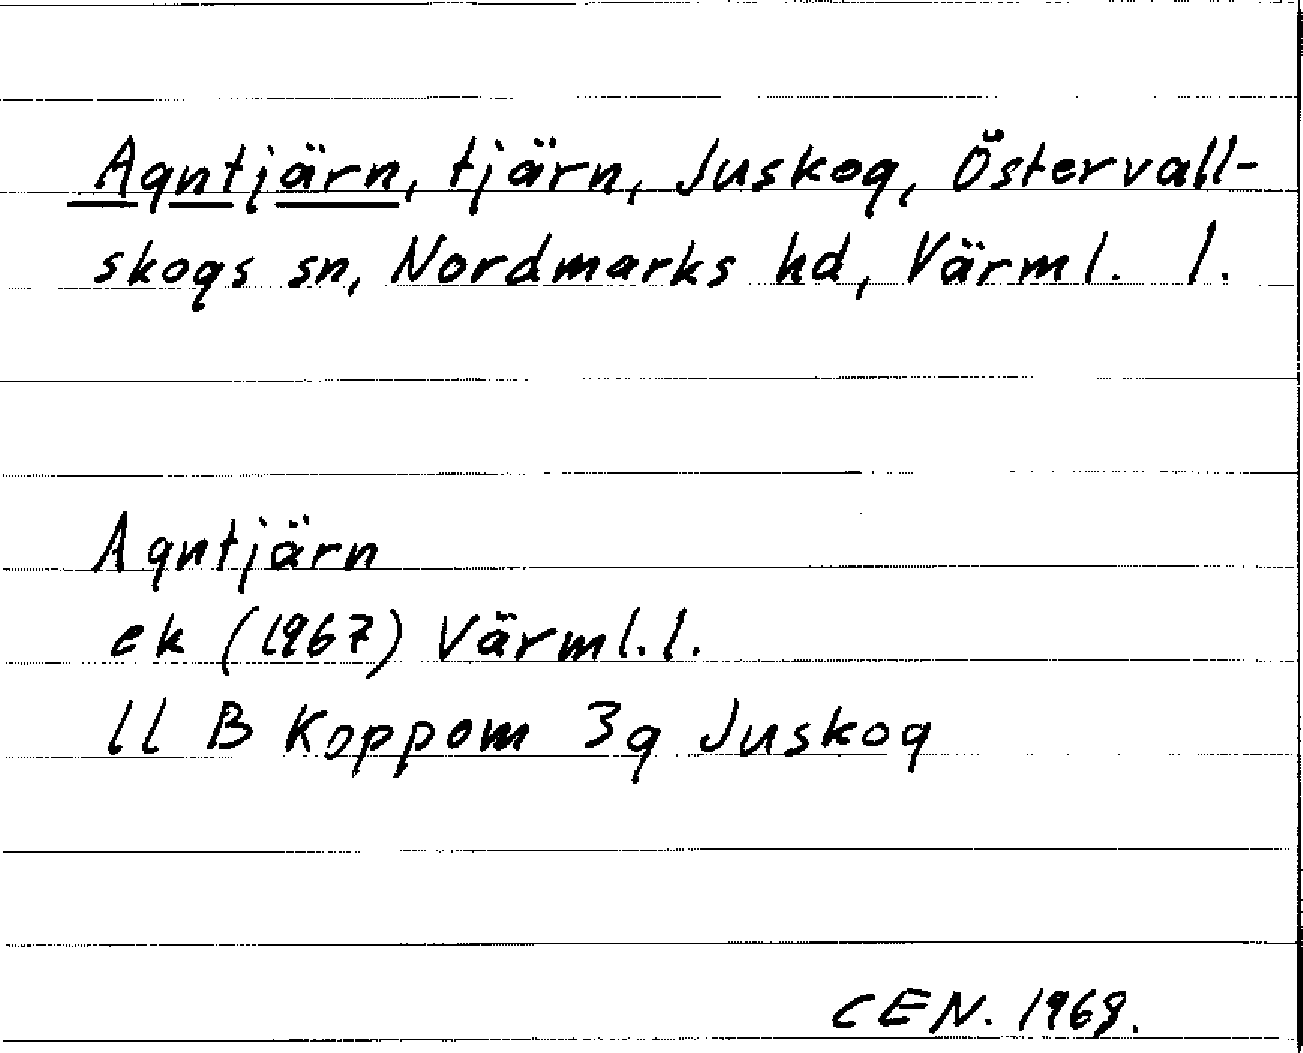 Agntjärn, tjärn, Juskog, Östervall-
skogs sn, Nordmarks hd, Värml. l.
Agntjärn
ek (1967) Värml.l.
11 B Koppom 3g Juskog
CEN. 1968.